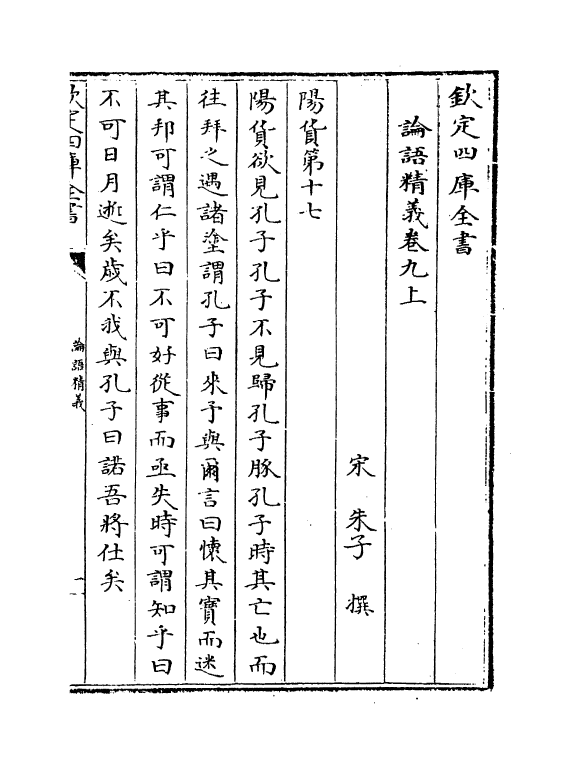 欽定四庫全書
論語精義卷九上
宋 朱子 撰
陽貨第十七
陽貨欲見孔子孔子不見歸孔子豚孔子時其亡也而
往拜之遇諸塗謂孔子曰來予與爾言曰懷其寳而迷
其邦可謂仁乎曰不可好從事而亟失時可謂知乎曰
不可日月逝矣歲不我與孔子曰諾吾將仕矣
欽定四庫全書
論語精義
一